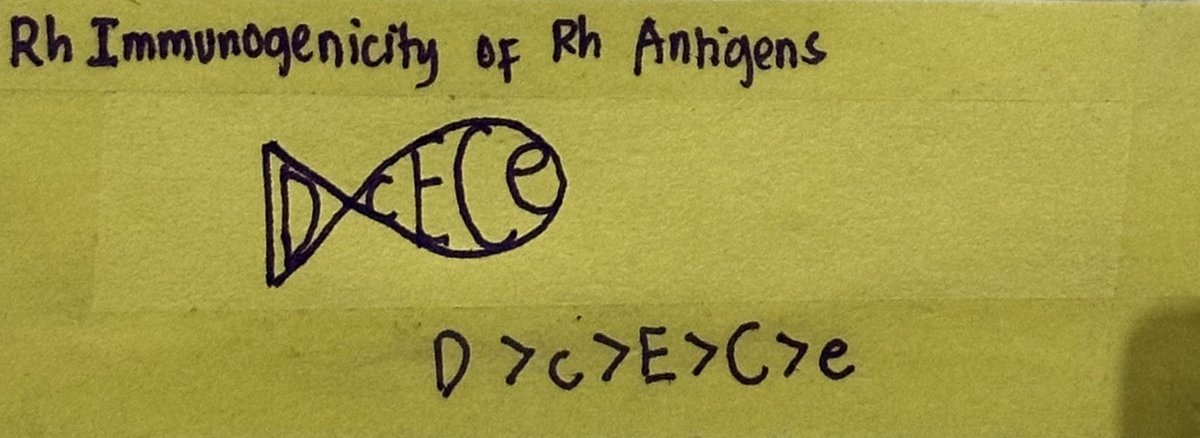 Rh Immunogenicity of Rh Antigens
D c E C e
D > c > E > C > e